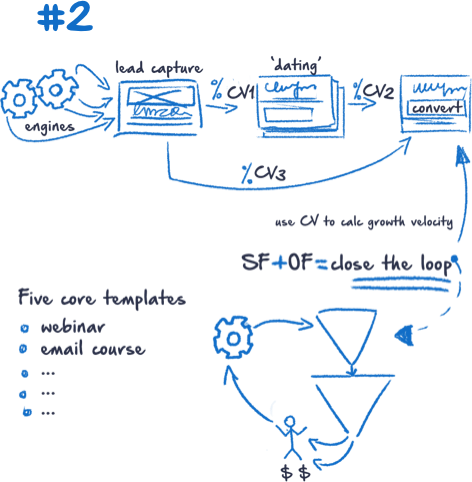 #2
lead capture
'dating'
% CV1
% CV2
convert
engines
% CV3
use CV to calc growth velocity
SF+OF=close the loop
Five core templates
webinar
email course
...
...
...
$ $